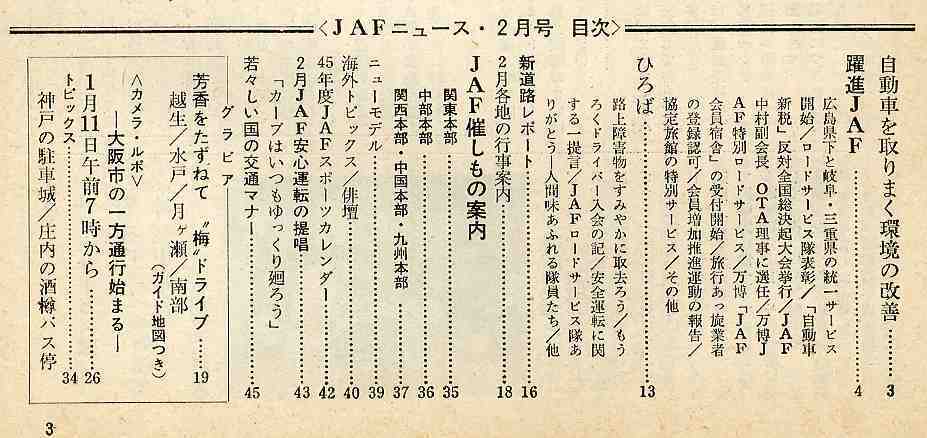 〈JAFニュース・2月号 目次〉
自動車を取りまく環境の改善……3
躍進JAF……4
広島県下と岐阜・三重県の統一サービス
開始／ロードサービス隊表彰／「自動車
新税」反対全国総決起大会挙行／JAF
中村副会長 OTA理事に選任／万博J
AF特別ロードサービス／万博「JAF
会員宿舎」の受付開始／旅行あっ旋業者
の登録認可／会員増加推進運動の報告／
協定旅館の特別サービス／その他
ひろば……13
路上障害物をすみやかに取去ろう／もう
ろくドライバー入会の記／安全運転に関
する一提言／JAFロードサービス隊あ
りがとう―人間味あふれる隊員たち／他
新道路レポート……16
2月各地の行事案内……18
JAF催しもの案内
関東本部……35
中部本部……36
関西本部・中国本部・九州本部……37
ニューモデル……39
海外トピックス／俳壇……40
45年度JAFスポーツカレンダー……42
2月JAF安心運転の提唱……43
「カーブはいつもゆっくり廻ろう」
若々しい国の交通マナー……45
グラビア
芳香をたずねて 〝梅〟ドライブ……19
越生／水戸／月ヶ瀬／南部
（ガイド地図つき）
〈カメラ・ルポ〉
―大阪市の一方通行始まる―
1月11日午前7時から……26
トピックス……34
神戸の駐車城／庄内の酒樽バス停
3